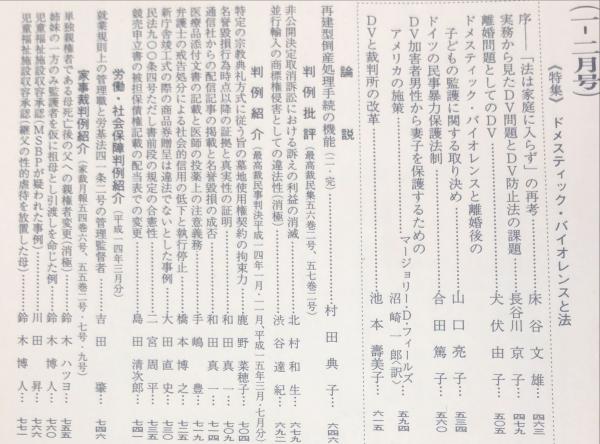 （一－二月号）
《特集》ドメスティック・バイオレンスと法
序――「法は家庭に入らず」の再考……床谷文雄…四六三
実務から見たDV問題とDV防止法の課題……長谷川京子…四七九
離婚問題としてのDV……犬伏由子…五〇五
ドメスティック・バイオレンスと離婚後の
子どもの監護に関する取り決め……山口亮子…五三四
ドイツの民事暴力保護法制……合田篤子…五六〇
DV加害者男性から妻子を保護するための
アメリカの施策……マージョリー・D・フィールズ
沼崎一郎〈訳〉…五九四
DVと裁判所の改革……池本壽美子…六一五
論説
再建型倒産処理手続の機能（二・完）……村田典子…六四六
判例批評（最高裁民集五六巻二号、五七巻二号）
非公開決定取消訴訟における訴えの利益の消滅……北村和生…六七九
並行輸入の商標権侵害としての違法性（消極）……渋谷達紀…六九二
判例紹介（最高裁民事判決平成一四年一月・二月、平成一五年三月・七月分）
特定の宗教典礼方式に従う旨の墓地使用権契約の拘束力……鹿野菜穂子…七〇四
名誉毀損行為時点以降の証拠と真実性の証明……和田真一…七〇九
通信社からの配信記事の掲載と名誉毀損の成否……和田真一…七一四
医療品添付文書の記載と医師の投薬上の注意義務……手嶋豊…七一九
弁護士の戒告処分による社会的信用の低下と執行停止……橋本博之…七二五
新庁舎竣工式の際の商品券贈呈は違法でないとした事例……大田直史…七三〇
民法九〇〇条四号ただし書前段の規定の合憲性……二宮周平…七三五
競売申立書の被担保債権記載の配当表での変更……島田清次郎…七四一
労働・社会保障判例紹介（平成一四年三月分）
就業規則上の管理職と労基法四一条二号の管理監督者……吉田肇…七四六
家事裁判例紹介（家裁月報五四巻六号、五五巻二号・七号・九号）
単独親権者である母死亡後の父への親権者変更（消極）……鈴木ハツヨ…七五五
姉妹の一方のみ監護者を仮に祖母とし引渡しを命じた例……鈴木博人…七六〇
児童福祉施設収容承認（MSBPが疑われた事例）……川田昇…七六六
児童福祉施設収容承認（継父の性的虐待を放置した母）……鈴木博人…七七一